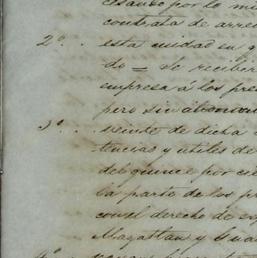 cesando por lo mi
contrata de arre
2º. . esta ciudad en q
do = Se recibir
empresa á los pre
pero sin abonar
3º. . siendo de dicha
tencias y utiles de
del quince por cie
la parte de los p
con el derecho de es
Mazatlan y Gua